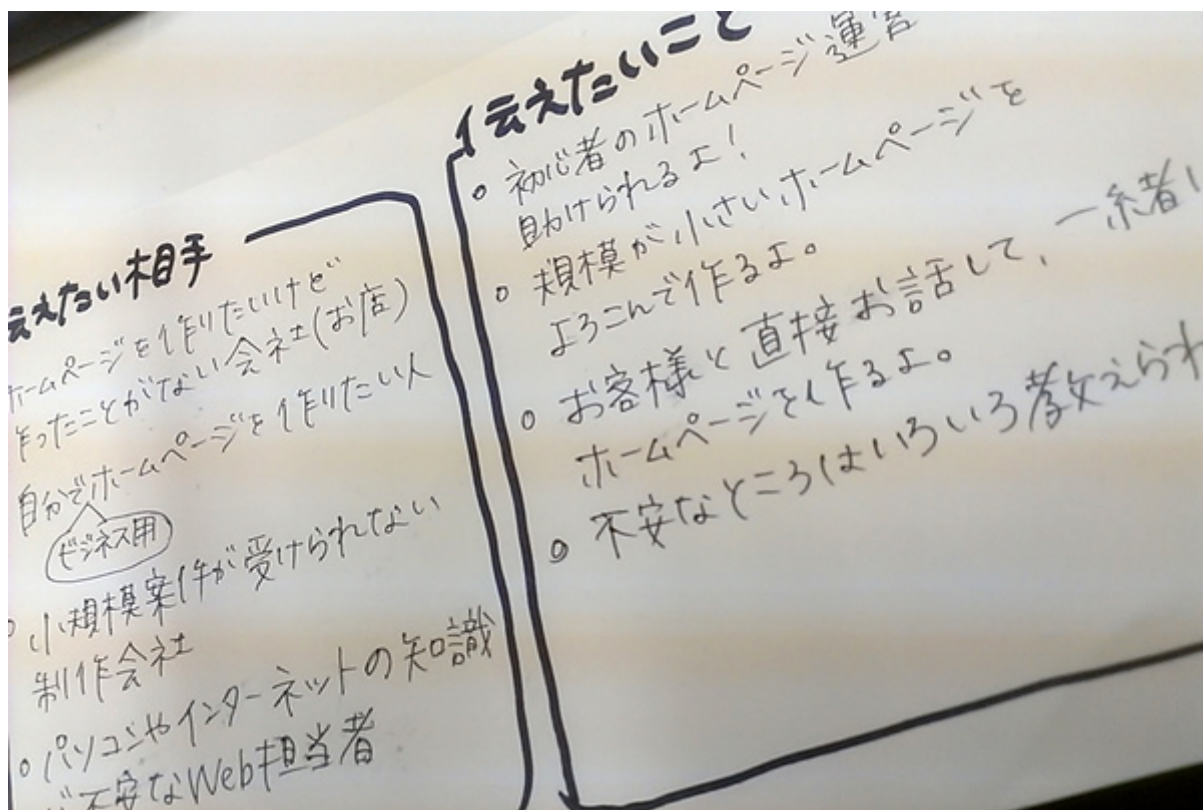 伝えたい相手
ホームページを作りたいけど
作ったことがない会社(お店)
自分でホームページを作りたい人
ビジネス用
小規模案件が受けられない
制作会社
パソコンやインターネットの知識
が不安なWeb担当者
伝えたいこと
初心者のホームページ運営
助けられるよ!
規模が小さいホームページを
よろこんで作るよ。
お客様と直接お話して、一緒に
ホームページを作るよ。
不安なところはいろいろ教えられ